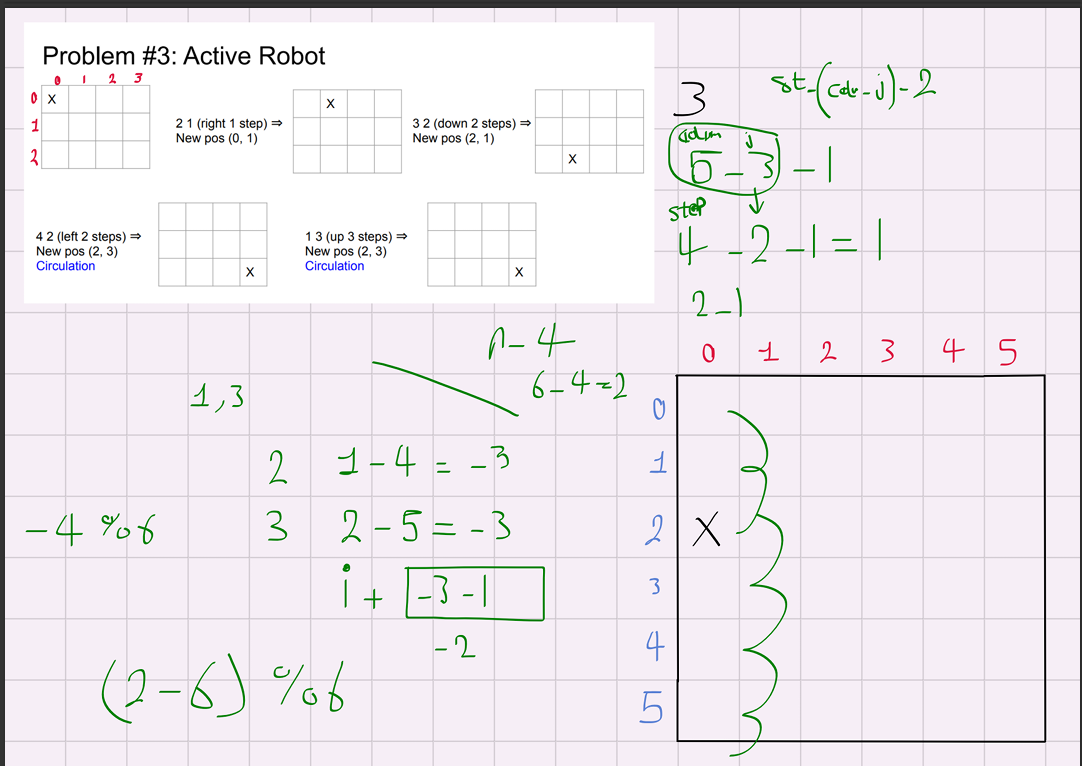 Problem #3: Active Robot
0 1 2 3
0 X
1
2
2 1 (right 1 step) ⇒
New pos (0, 1)
X
3 2 (down 2 steps) ⇒
New pos (2, 1)
X
4 2 (left 2 steps) ⇒
New pos (2, 3)
Circulation
X
1 3 (up 3 steps) ⇒
New pos (2, 3)
Circulation
X
3
j
5 - 3 - 1
step
4 - 2 - 1 = 1
2 - 1
n - 4
6 - 4 = 2
1,3
2 1 - 4 = -3
3 2 - 5 = -3
-4 % 6
i + -3 - 1
-2
(2 - 6) % 6
0 1 2 3 4 5
0
1
2 X
3
4
5